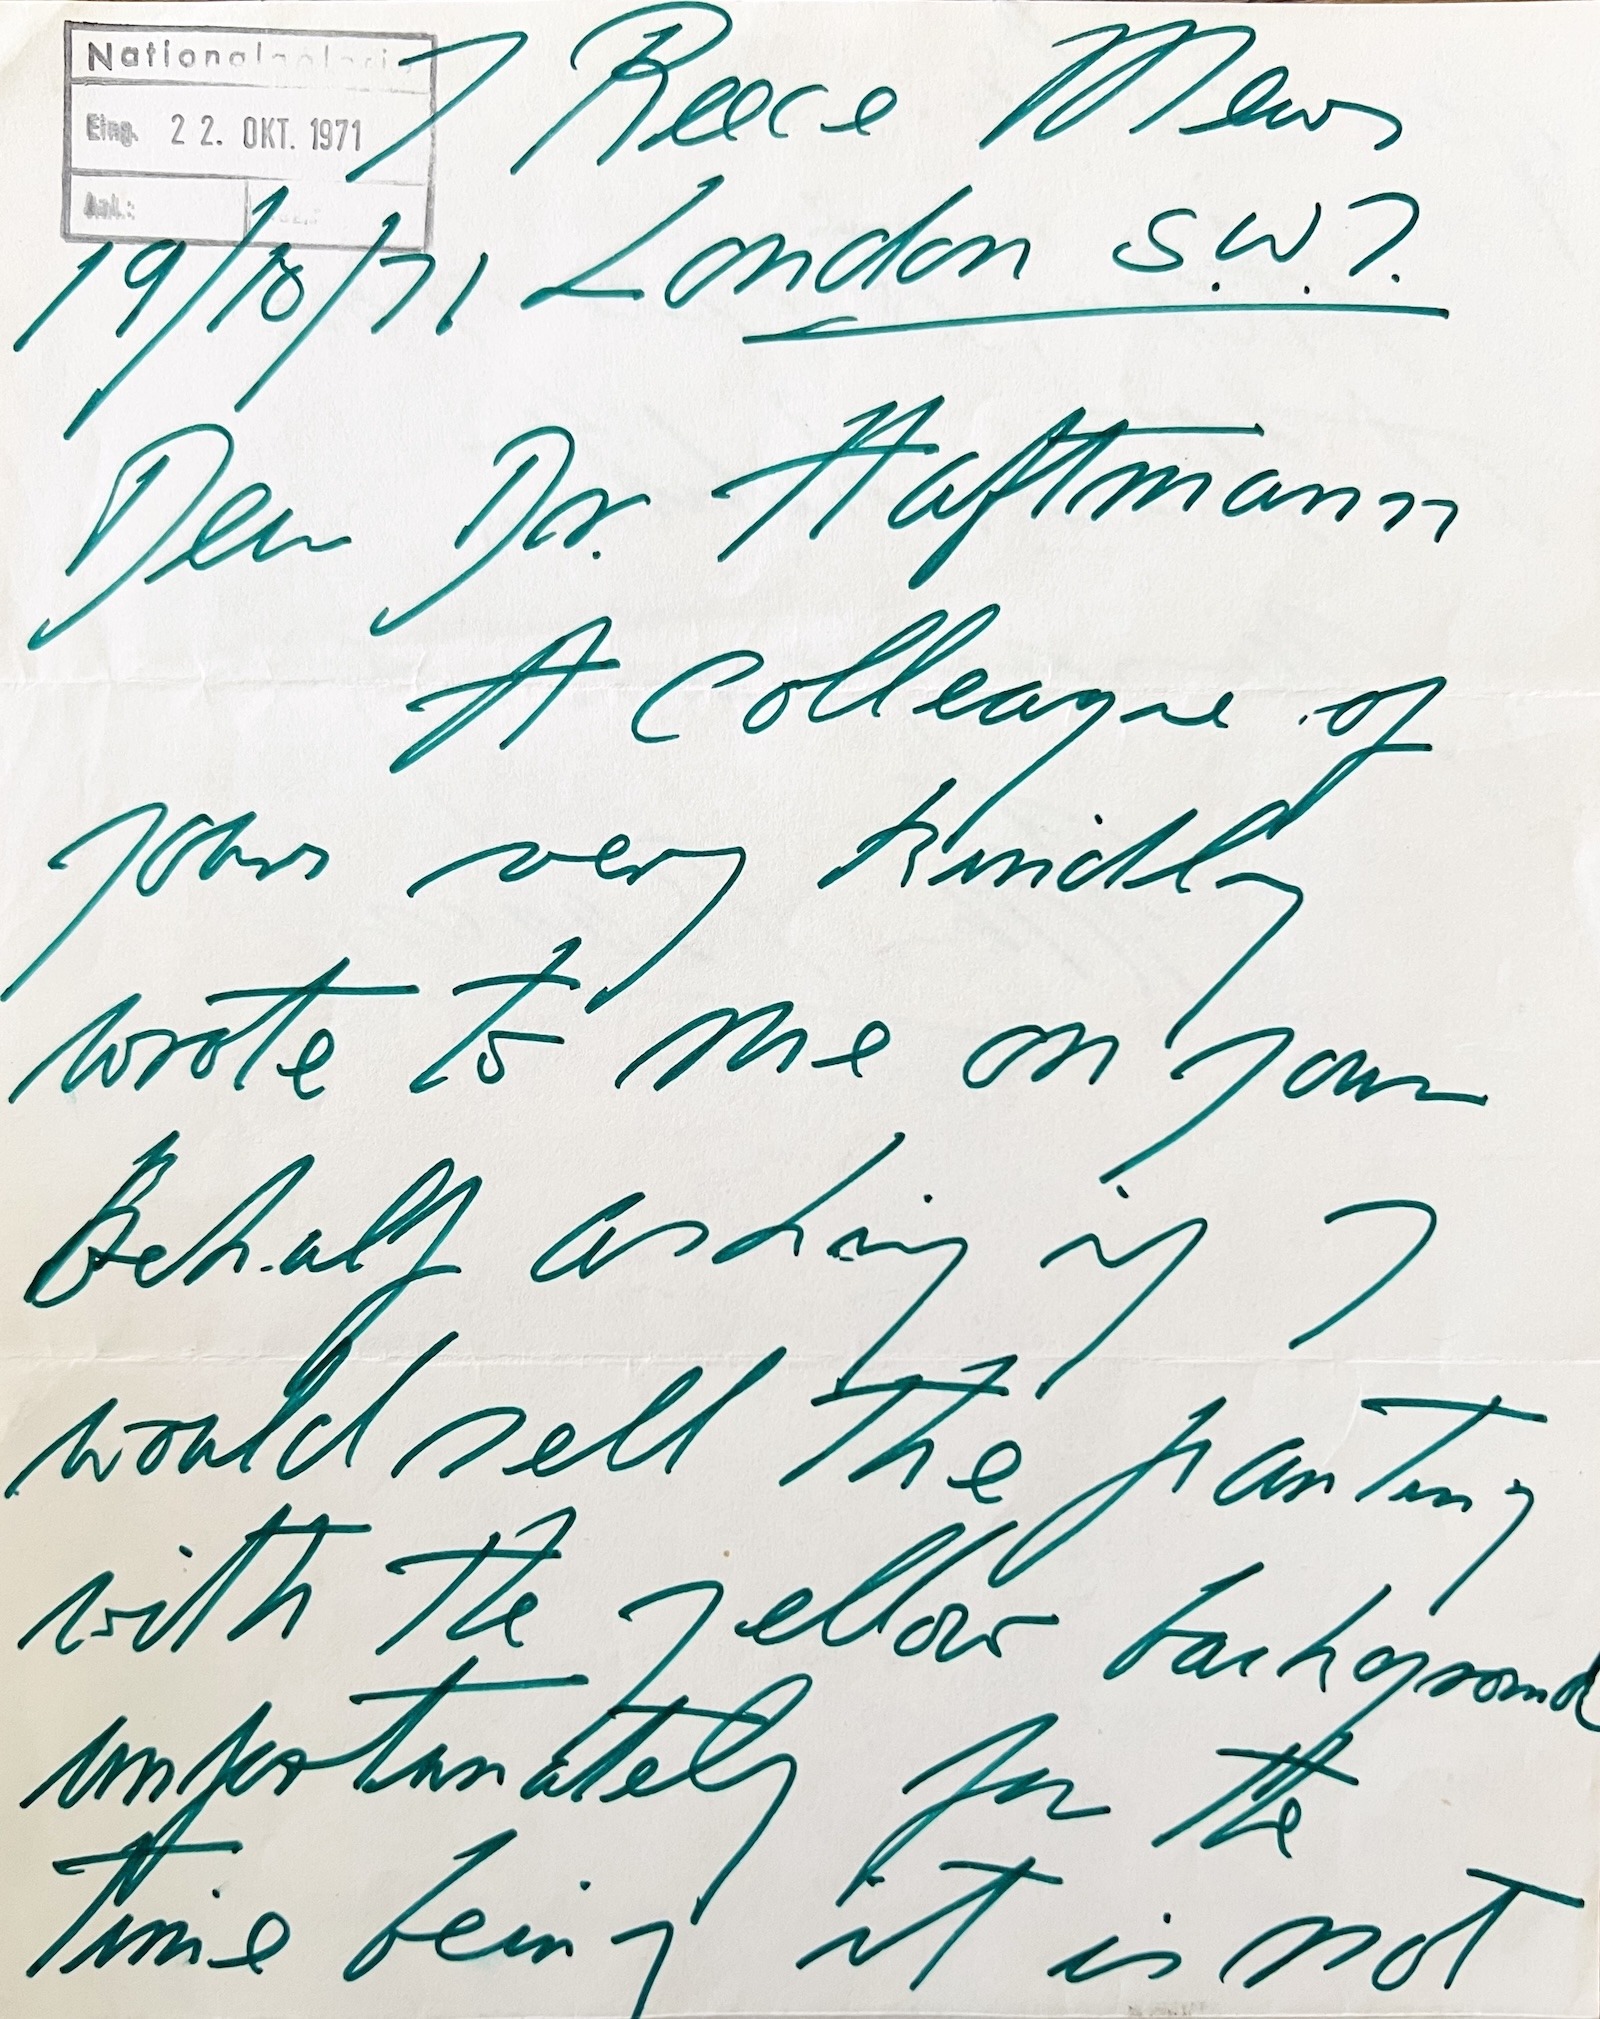 Nationalgalerie
Eing. 22. OKT. 1971
Anl.:
7 Reece Mews
19/10/71 London S.W.7.
Dear Dr. Haftmann
A Colleague of
yours very kindly
wrote to me on your
Behalf asking if I
would sell the painting
with the yellow background
unfortunately for the
time being it is not